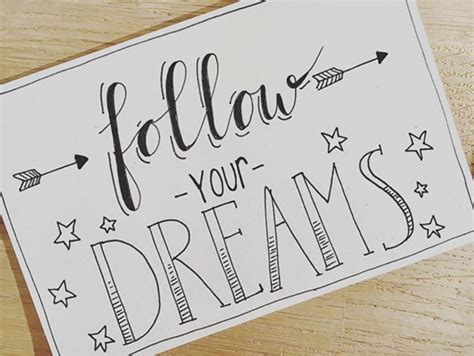 follow
-your-
DREAMS